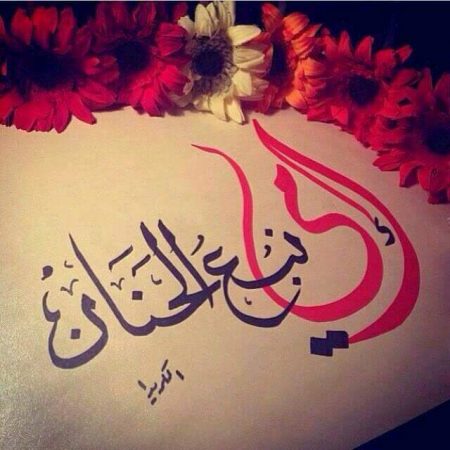 أمي نبعُ الحَنَان